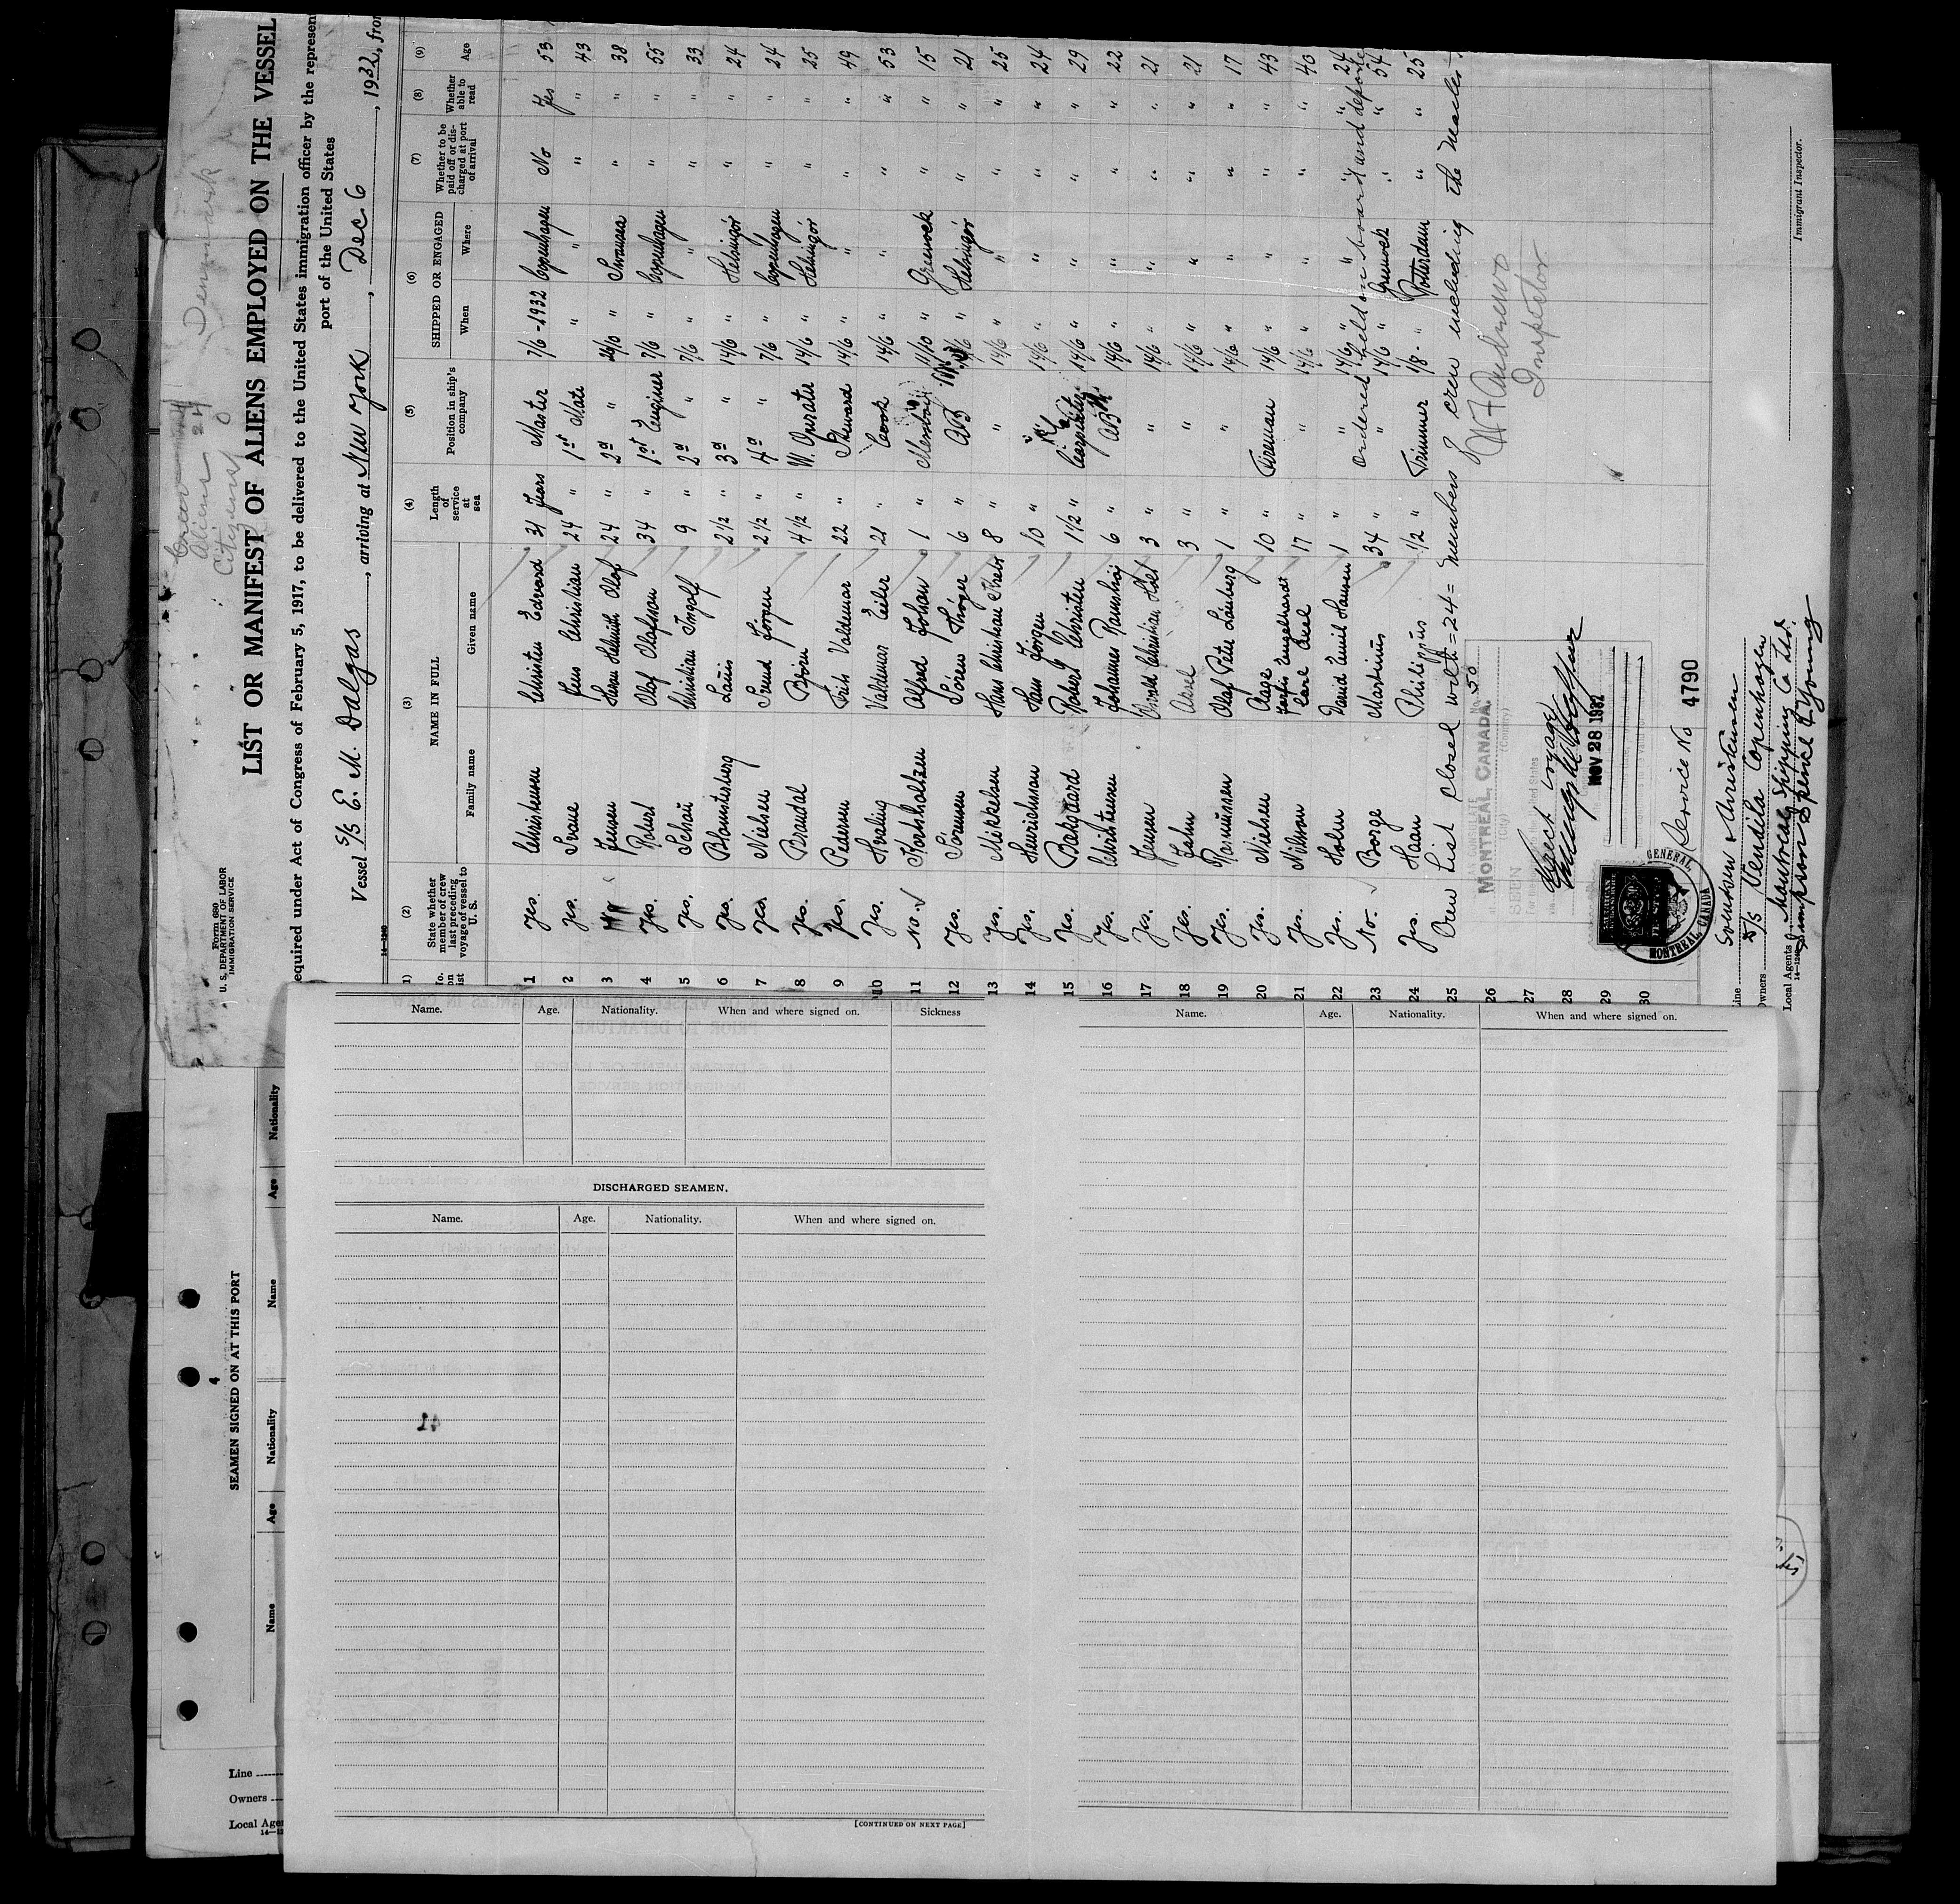 Form 680
U. S. DEPARTMENT OF LABOR
IMMIGRATION SERVICE
Crew
Aliens 24
Citizens 0
Denmark
LIST OR MANIFEST OF ALIENS EMPLOYED ON THE VESSEL
equired under Act of Congress of February 5, 1917, to be delivered to the United States immigration officer by the represen
port of the United States
Vessel S/S E. M. Dalgas, arriving at New York, Dec. 6, 1932, fro
14-1240
(1) (2) (3) (4) (5) (6) (7) (8) (9)
No. on list State whether member of crew last preceding voyage of vessel to U. S. NAME IN FULL Family name Given name Length of service at sea Position in ship's company SHIPPED OR ENGAGED When Where Whether to be paid off or discharged at port of arrival Whether able to read Age
1 Yes. Christensen Christen Edvard 31 Years Master 7/6-1932 Copenhagen No Yes 53
2 Yes. Svane Jens Christian 24 " 1st Mate " " " " 43
3 Jensen Svenn Helmuth Olaf 24 " 2d " 24/10 " Swansea " " 38
4 Yes. Robert Olaf Olafsson 34 " 1st Engineer 7/6 " Copenhagen " " 55
5 Yes. Schou Christian Ingolf 9 " 2d " 7/6 " " " " 33
6 Yes. Blomsterberg Lauis 2 1/2 " 3d " 14/6 " Helsingör " " 24
7 Yes. Nielsen Svend Jörgen 2 1/2 " 4d " 7/6 " Copenhagen " " 24
8 Yes. Brandal Björn 4 1/2 " W. Operator 14/6 " Helsingör " " 25
9 Yes. Pedersen Frits Valdemar 22 " Steward 14/6 " " " " 49
10 Yes. Hvaling Valdemar Eiler 21 " Cook 14/6 " " " " 53
11 No. Korsholtzen Alfred Johan 1 " Messboy 11/10 " Greenock " " 15
12 Yes. Sörensen Sören Thöger 6 " AB 14/6 " Helsingör " " 21
13 Yes. Mikkelsen Hans Christian 8 " " 14/6 " " " " 25
14 Yes. Henrichsen Hans Jörgen 10 " " 14/6 " " " " 24
15 Yes. Bakgaard Robert Christen 1 1/2 " Carpenter 14/6 " " " " 29
16 Yes. Christensen Johannes Ramshöj 6 " AB 14/6 " " " " 22
17 Yes. Jensen Svend Christian Holt 3 " " 14/6 " " " " 21
18 Yes. Lahn Axel 3 " " 14/6 " " " " 21
19 Yes. Rasmussen Olaf Peter Lönberg 1 " " 14/6 " " " " 17
20 Yes. Nielsen Aage 10 " Fireman 14/6 " " " " 43
21 Yes. Nilsson Carl Axel 17 " " 14/6 " " " " 40
22 Yes. Holm David Emil Hansen 1 " " 14/6 " " " " 24
ordered held on board and deported
23 No. Borge Martinus 34 " " 14/6 " Greenock " " 54
24 Yes. Haan Philippus 1/2 " Trimmer 1/8 " Rotterdam " " 25
25 Crew List closed with = 24 = members of crew including the Master
26
27
28
29
30
W F Andrews
Inspector
SEEN
MONTREAL, CANADA.
No. 50
(City) (Country)
Direct voyage
NOV 28 1932
AMERICAN
GENERAL
MONTREAL, CANADA
Service No 4790
Immigrant Inspector.
Line Sörensen & Christensen
Owners D/S Vendila Copenhagen
Local Agents Montreal Shipping Co Ltd.
Simpson Spence & Young
14-1240
4
SEAMEN SIGNED ON AT THIS PORT
Name Age Nationality Name Age Nationality
Line
Owners
Local Agen
Name. Age. Nationality. When and where signed on. Sickness
DISCHARGED SEAMEN.
Name. Age. Nationality. When and where signed on.
[CONTINUED ON NEXT PAGE]
Name. Age. Nationality. When and where signed on.